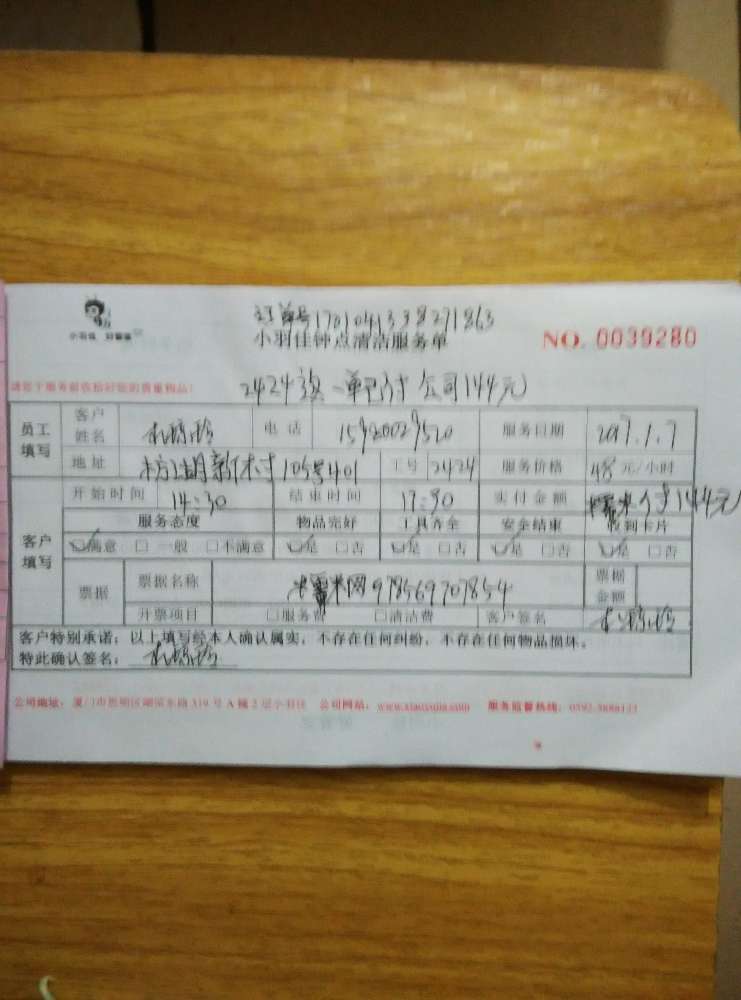 订单号1701041338271863
小羽佳 好管家
小羽佳钟点清洁服务单
NO. 0039280
2424 公司144元
员工填写 客户姓名 电话 15920029520 服务日期 2017.1.7
地址 枋湖新村105号401 工号 2424 服务价格 48元/小时
客户填写 开始时间 14:30 结束时间 17:30 实付金额 144元
服务态度 物品完好 工具齐全 安全结束 收到卡片
满意 □ 一般 □不满意 是 □否 是 □否 是 □否 是 □否
票据 票据名称 米网978569707854 票据金额
开票项目 □服务费 □清洁费 客户签名
客户特别承诺:以上填写经本人确认属实,不存在任何纠纷,不存在任何物品损坏。
特此确认签名:
公司地址:厦门市思明区湖滨东路319号A幢2层小羽佳 公司网站:www.xiaoyujia.com 服务监督热线: